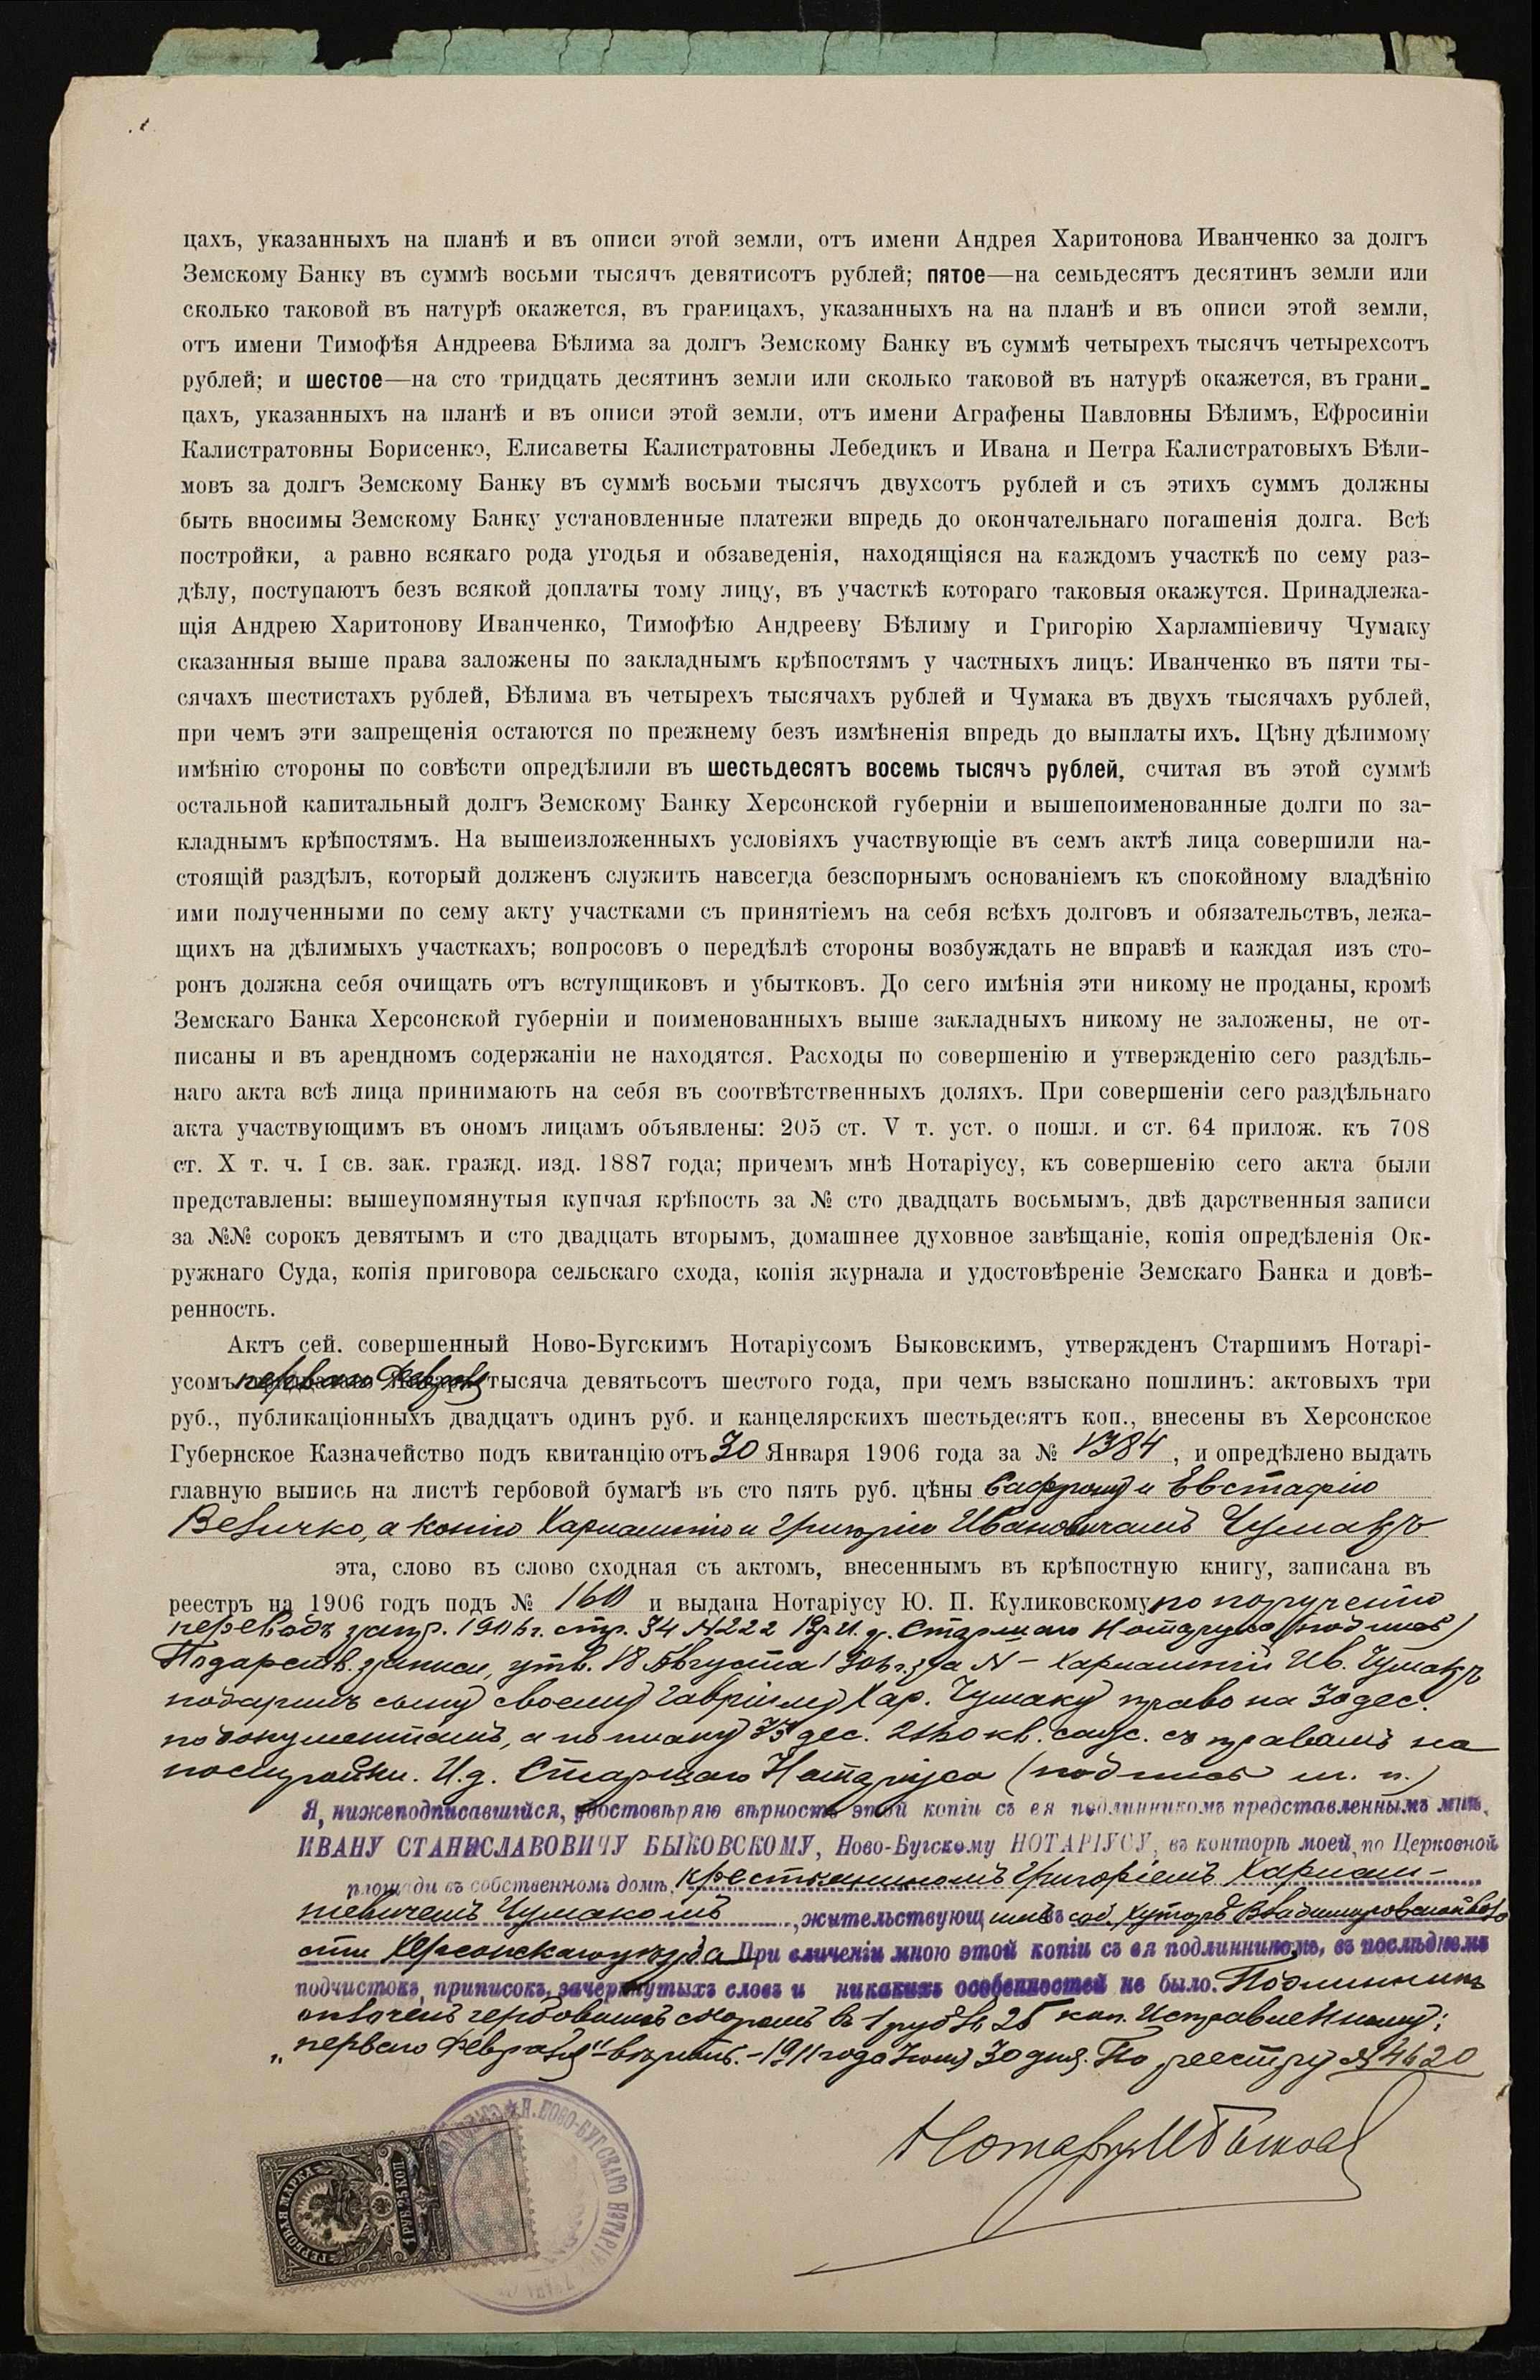 цахъ, указанныхъ на планѣ и въ описи этой земли, отъ имени Андрея Харитонова Иванченко за долгъ
Земскому Банку въ суммѣ восьми тысячъ девятисотъ рублей; пятое—на семьдесятъ десятинъ земли или
сколько таковой въ натурѣ окажется, въ границахъ, указанныхъ на на планѣ и въ описи этой земли,
отъ имени Тимофѣя Андреева Бѣлима за долгъ Земскому Банку въ суммѣ четырехъ тысячъ четырехсотъ
рублей; и шестое—на сто тридцать десятинъ земли или сколько таковой въ натурѣ окажется, въ грани-
цахъ, указанныхъ на планѣ и въ описи этой земли, отъ имени Аграфены Павловны Бѣлимъ, Ефросиніи
Калистратовны Борисенко, Елисаветы Калистратовны Лебедикъ и Ивана и Петра Калистратовыхъ Бѣли-
мовъ за долгъ Земскому Банку въ суммѣ восьми тысячъ двухсотъ рублей и съ этихъ суммъ должны
быть вносимы Земскому Банку установленные платежи впредь до окончательнаго погашенія долга. Всѣ
постройки, а равно всякаго рода угодья и обзаведенія, находящіяся на каждомъ участкѣ по сему раз-
дѣлу, поступаютъ безъ всякой доплаты тому лицу, въ участкѣ котораго таковыя окажутся. Принадлежа-
щія Андрею Харитонову Иванченко, Тимофѣю Андрееву Бѣлиму и Григорію Харлампіевичу Чумаку
сказанныя выше права заложены по закладнымъ крѣпостямъ у частныхъ лицъ: Иванченко въ пяти ты-
сячахъ шестистахъ рублей, Бѣлима въ четырехъ тысячахъ рублей и Чумака въ двухъ тысячахъ рублей,
при чемъ эти запрещенія остаются по прежнему безъ измѣненія впредь до выплаты ихъ. Цѣну дѣлимому
имѣнію стороны по совѣсти опредѣлили въ шестьдесятъ восемь тысячъ рублей, считая въ этой суммѣ
остальной капитальный долгъ Земскому Банку Херсонской губерніи и вышепоименованные долги по за-
кладнымъ крѣпостямъ. На вышеизложенныхъ условіяхъ участвующіе въ семъ актѣ лица совершили на-
стоящій раздѣлъ, который долженъ служить навсегда безспорнымъ основаніемъ къ спокойному владѣнію
ими полученными по сему акту участками съ принятіемъ на себя всѣхъ долговъ и обязательствъ, лежа-
щихъ на дѣлимыхъ участкахъ; вопросовъ о передѣлѣ стороны возбуждать не вправѣ и каждая изъ сто-
ронъ должна себя очищать отъ вступщиковъ и убытковъ. До сего имѣнія эти никому не проданы, кромѣ
Земскаго Банка Херсонской губерніи и поименованныхъ выше закладныхъ никому не заложены, не от-
писаны и въ арендномъ содержаніи не находятся. Расходы по совершенію и утвержденію сего раздѣль-
наго акта всѣ лица принимаютъ на себя въ соотвѣтственныхъ доляхъ. При совершеніи сего раздѣльнаго
акта участвующимъ въ ономъ лицамъ объявлены: 205 ст. V т. уст. о пошл. и ст. 64 прилож. къ 708
ст. X т. ч. I св. зак. гражд. изд. 1887 года; причемъ мнѣ Нотаріусу, къ совершенію сего акта были
представлены: вышеупомянутыя купчая крѣпость за № сто двадцать восьмымъ, двѣ дарственныя записи
за №№ сорокъ девятымъ и сто двадцать вторымъ, домашнее духовное завѣщаніе, копія опредѣленія Ок-
ружнаго Суда, копія приговора сельскаго схода, копія журнала и удостовѣреніе Земскаго Банка и довѣ-
ренность.
Актъ сей. совершенный Ново-Бугскимъ Нотаріусомъ Быковскимъ, утвержденъ Старшимъ Нотарі-
усомъ перваго Февраля тысяча девятьсотъ шестого года, при чемъ взыскано пошлинъ: актовыхъ три
руб., публикаціонныхъ двадцать одинъ руб. и канцелярскихъ шестьдесятъ коп., внесены въ Херсонское
Губернское Казначейство подъ квитанцію отъ 30 Января 1906 года за № 1384, и опредѣлено выдать
главную выпись на листѣ гербовой бумагѣ въ сто пять руб. цѣны Сафрону и Евстафію
Величко, а копію Харлампію и Григорію Ивановичамъ Чумакъ
эта, слово въ слово сходная съ актомъ, внесеннымъ въ крѣпостную книгу, записана въ
реестръ на 1906 годъ подъ № 160 и выдана Нотаріусу Ю. П. Куликовскому по порученію
переводъ запр. 1906 г. стр. 34 № 222 И. д. Старшаго Нотаріуса (подпись)
По дарств. записи, утв. 18 Августа 1906 г. за № — Харлампій Ив. Чумакъ
подарилъ сыну своему Гавріилу Хар. Чумаку право на 30 дес.
по документамъ, а по плану 33 дес. кв. саж. съ правамъ на
постройки. И. д. Старшаго Нотаріуса (подпись м. п.)
Я, нижеподписавшійся, удостовѣряю вѣрность этой копіи съ ея подлинникомъ представленнымъ мнѣ,
ИВАНУ СТАНИСЛАВОВИЧУ БЫКОВСКОМУ, Ново-Бугскому НОТАРІУСУ, въ конторѣ моей, по Церковной
площади въ собственномъ домѣ, крестьяниномъ Григоріемъ Харлам-
піевичемъ Чумакомъ, жительствующимъ въ соб. хуторѣ Владимировской воло
сти Херсонскаго уѣзда При сличеніи мною этой копіи съ ея подлинникомъ, въ послѣднемъ
подчистокъ, приписокъ, зачеркнутыхъ словъ и никакихъ особенностей не было. Подлинникъ
оплоченъ гербовымъ сборомъ въ 1 рубль 25 коп. Исправленному:
„перваго Февраля" вѣрить. — 1911 года Іюня 30 дня. По реестру № 4620
Нотаріусъ И Быковскій
ГЕРБОВАЯ МАРКА
1 РУБ. 25 КОП.
НОВО-БУГСКАГО НОТАРІУСА